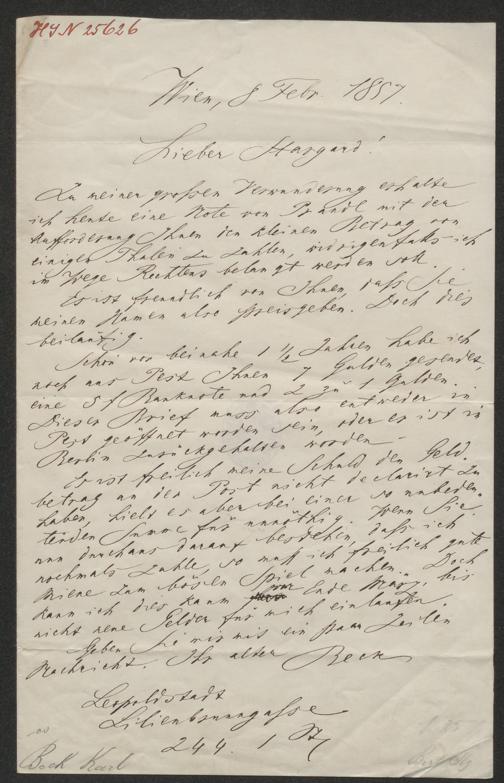 HIN 25626
Wien, 8 Febr. 1857.
Lieber Stargard!
Zu meiner großen Verwunderung erhalte
ich heute eine Note von Prandl mit der
Aufforderung Ihnen den kleinen Betrag von
einigen Thalern zu zahlen, widrigenfalls ich
im Wege Rechtens belangt werden soll.
Es ist freundlich von Ihnen, daß Sie
meinen Namen also preisgeben. Doch dies
beiläufig.
Schon vor beinahe 1 1/2 Jahren habe ich
noch aus Pest Ihnen 7 Gulden gesendet,
eine 5 f Banknote und 2 zu 1 Gulden.
Dieser Brief muss also entweder in
Pest geöffnet worden sein, oder er ist in
Berlin zurückgehalten worden -
Es ist freilich meine Schuld den Geld-
betrag an der Post nicht declarirt zu
haben, hielt es aber bei einer so unbeden-
tenden Summe für unnöthig. Wenn Sie
nun durchaus darauf bestehen, daß ich
nochmals zahle, so muß ich freilich gute
Miene zum bösen Spiel machen. Doch
kann ich dies kaum vor Ende März, bis
nicht neue Gelder für mich einlaufen.
Geben Sie mir mit ein paar Zeilen
Nachricht. Ihr alter Beck
Leopoldstadt
Lilienbrunngasse
244. 1 St
Beck Karl